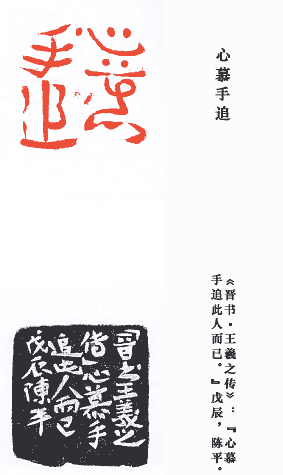 心慕手追
《晋书·王羲之传》：『心慕
手追此人而已。』戊辰，陈平。
心慕
手追
『晋书王羲之
传』心慕手
追此人而已
戊辰陳平